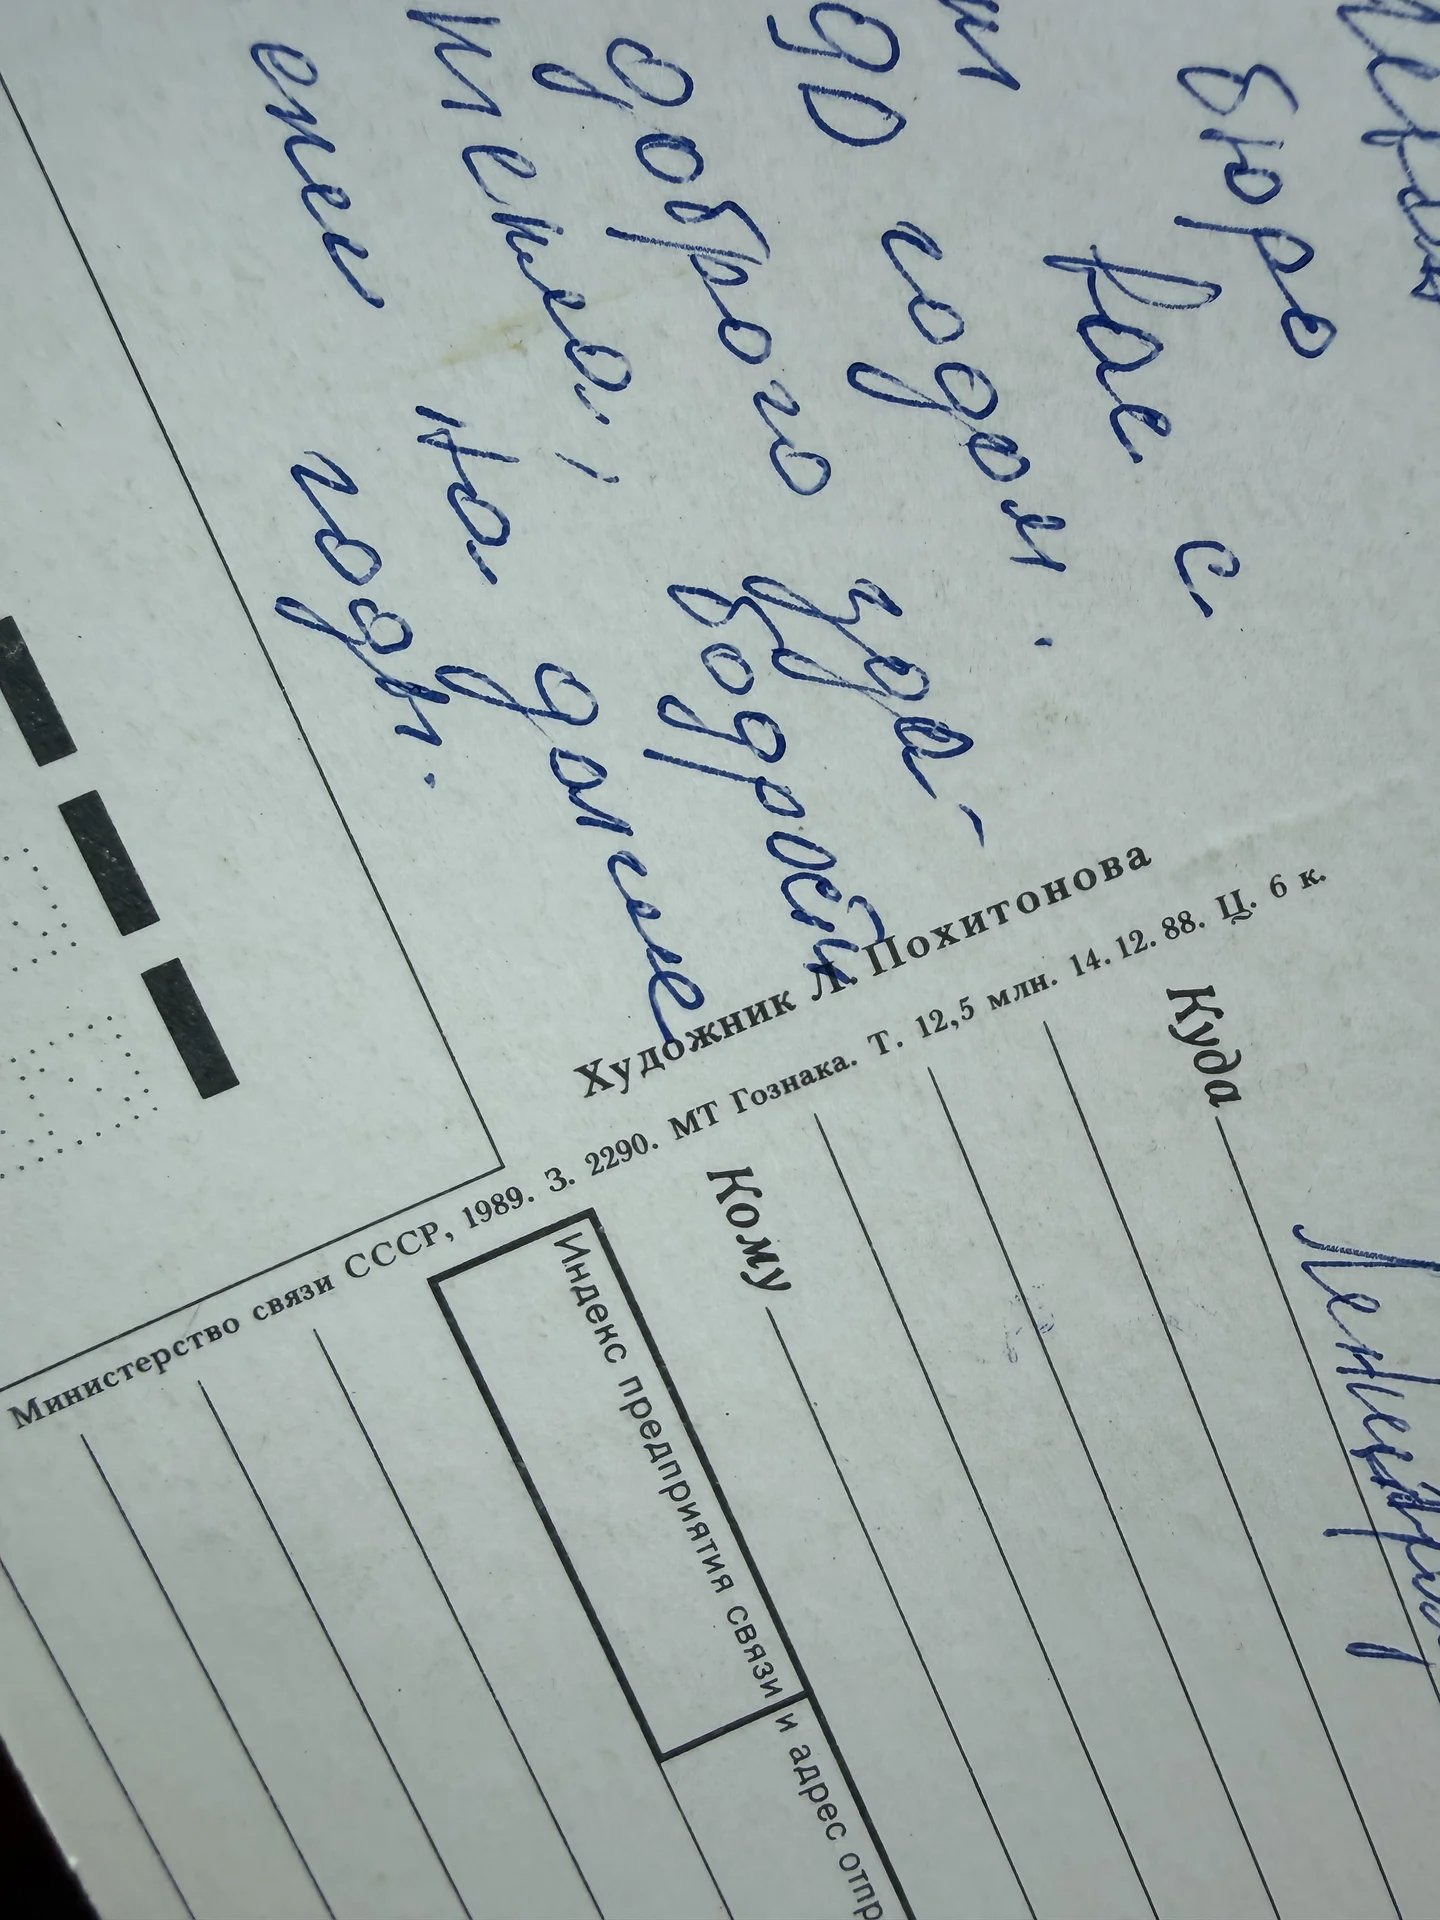 бюро
Вас с
90 годом.
доброго здо-
бодрости
на долгие
годы.
Художник Л. Похитонова
Министерство связи СССР, 1989. З. 2290. МТ Гознака. Т. 12,5 млн. 14.12.88. Ц. 6 к.
Куда
Ленинград
Кому
Индекс предприятия связи и адрес отпр